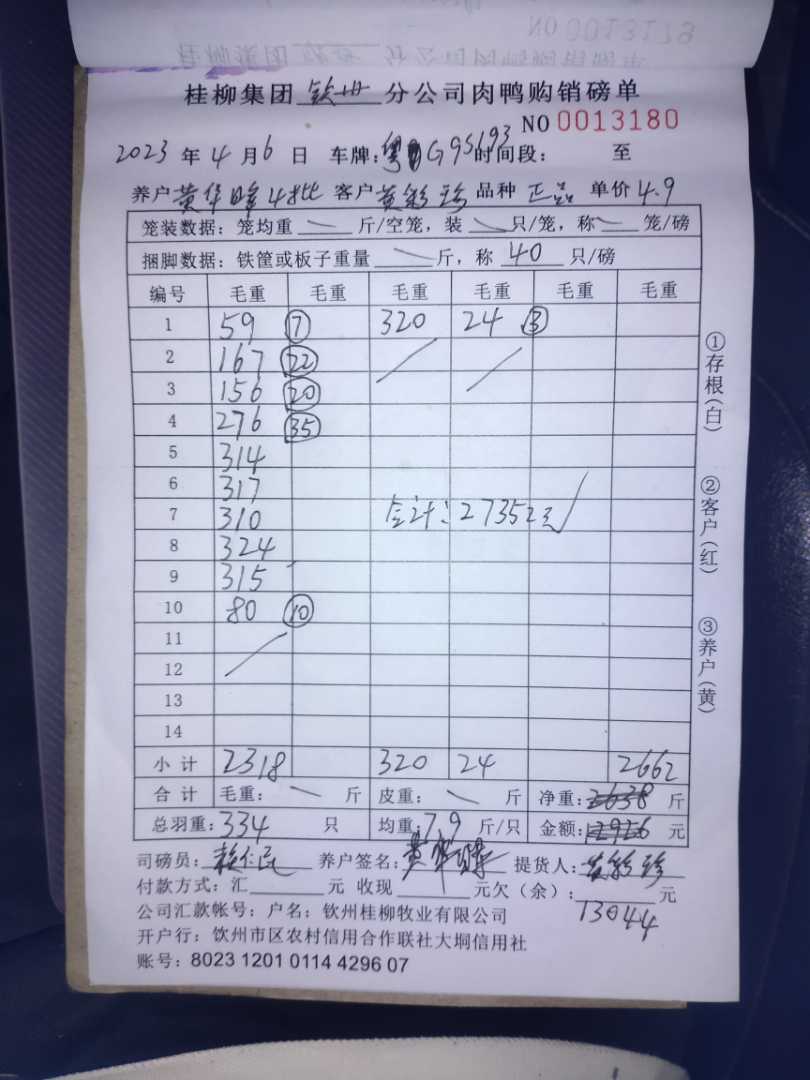 NO 0013179
桂柳集团 钦州 分公司肉鸭购销磅单
NO 0013180
2023 年 4 月 6 日 车牌: 粤 G95193 时间段: 至
养户 黄华 4批 客户 黄彩珍 品种 正品 单价 4.9
笼装数据: 笼均重 斤/空笼, 装 只/笼, 称 笼/磅
捆脚数据: 铁筐或板子重量 斤, 称 40 只/磅
编号 毛重 毛重 毛重 毛重 毛重 毛重
1 59 ⑦ 320 24 ③
2 167 ㉒
3 156 ⑳
4 276 ㉟
5 314
6 317
7 310 合计: 27352元
8 324
9 315
10 80 ⑩
11
12
13
14
小计 2318 320 24 2662
合计 毛重: 斤 皮重: 斤 净重: 2638 斤
总羽重: 334 只 均重: 7.9 斤/只 金额: 12926 元
司磅员: 养户签名: 黄华 提货人: 黄彩珍
付款方式: 汇 元 收现 元欠(余): 元
13044
公司汇款帐号: 户名: 钦州桂柳牧业有限公司
开户行: 钦州市区农村信用合作联社大垌信用社
账号: 8023 1201 0114 4296 07
①存根(白)
②客户(红)
③养户(黄)